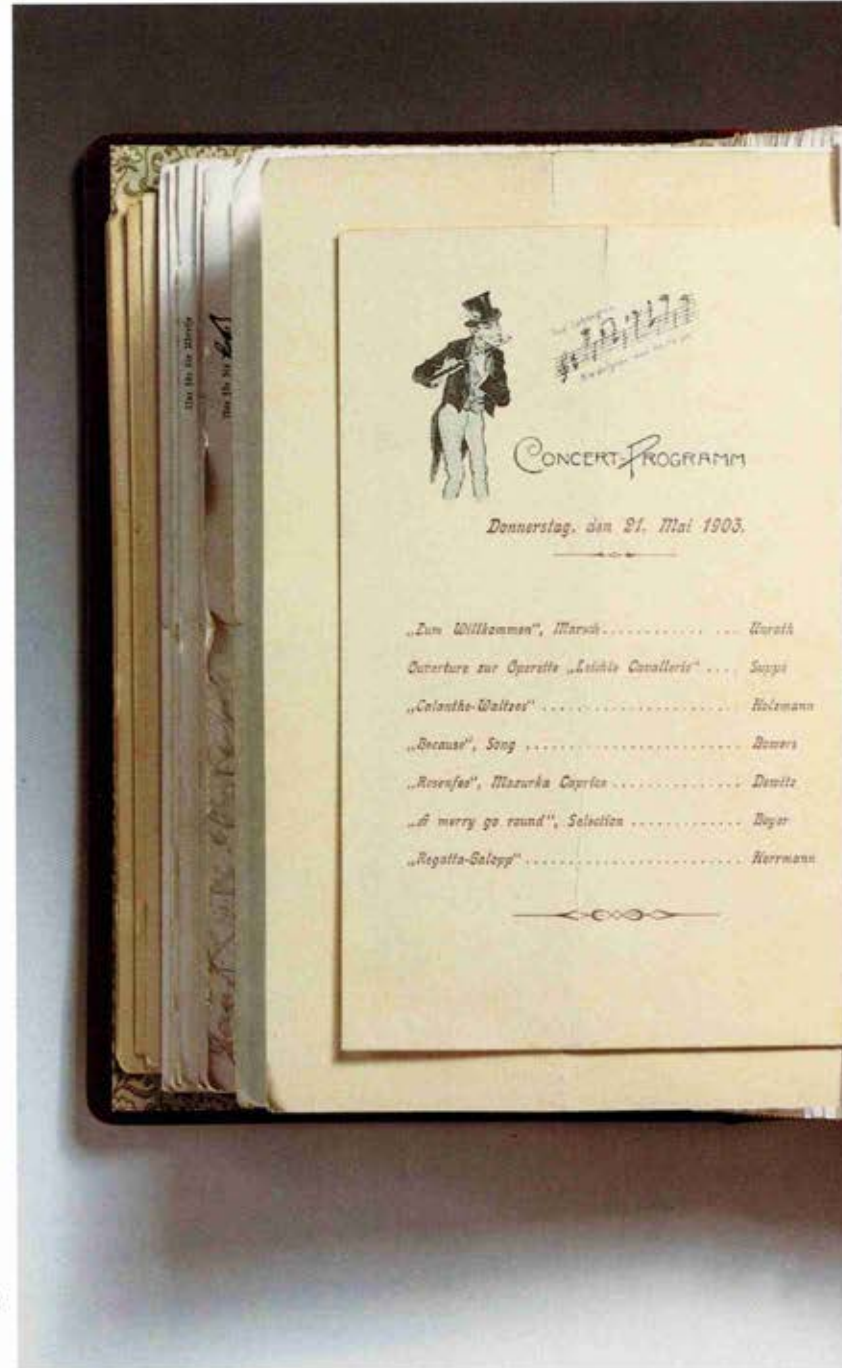 CONCERT-PROGRAMM
Donnerstag, den 21. Mai 1903.
„Zum Willkommen“, Marsch............ ... Unrath
Ouverture zur Operette „Leichte Cavallerie“ .... Suppé
„Calanthe-Waltzes“ ...................... Holzmann
„Because“, Song ........................ Bowers
„Rosenfee“, Mazurka Caprice .............. Dewitz
„A merry go round“, Selection ............. Beyer
„Regatta-Galopp“ ........................ Herrmann
Nur für die Adresse
Nur für die